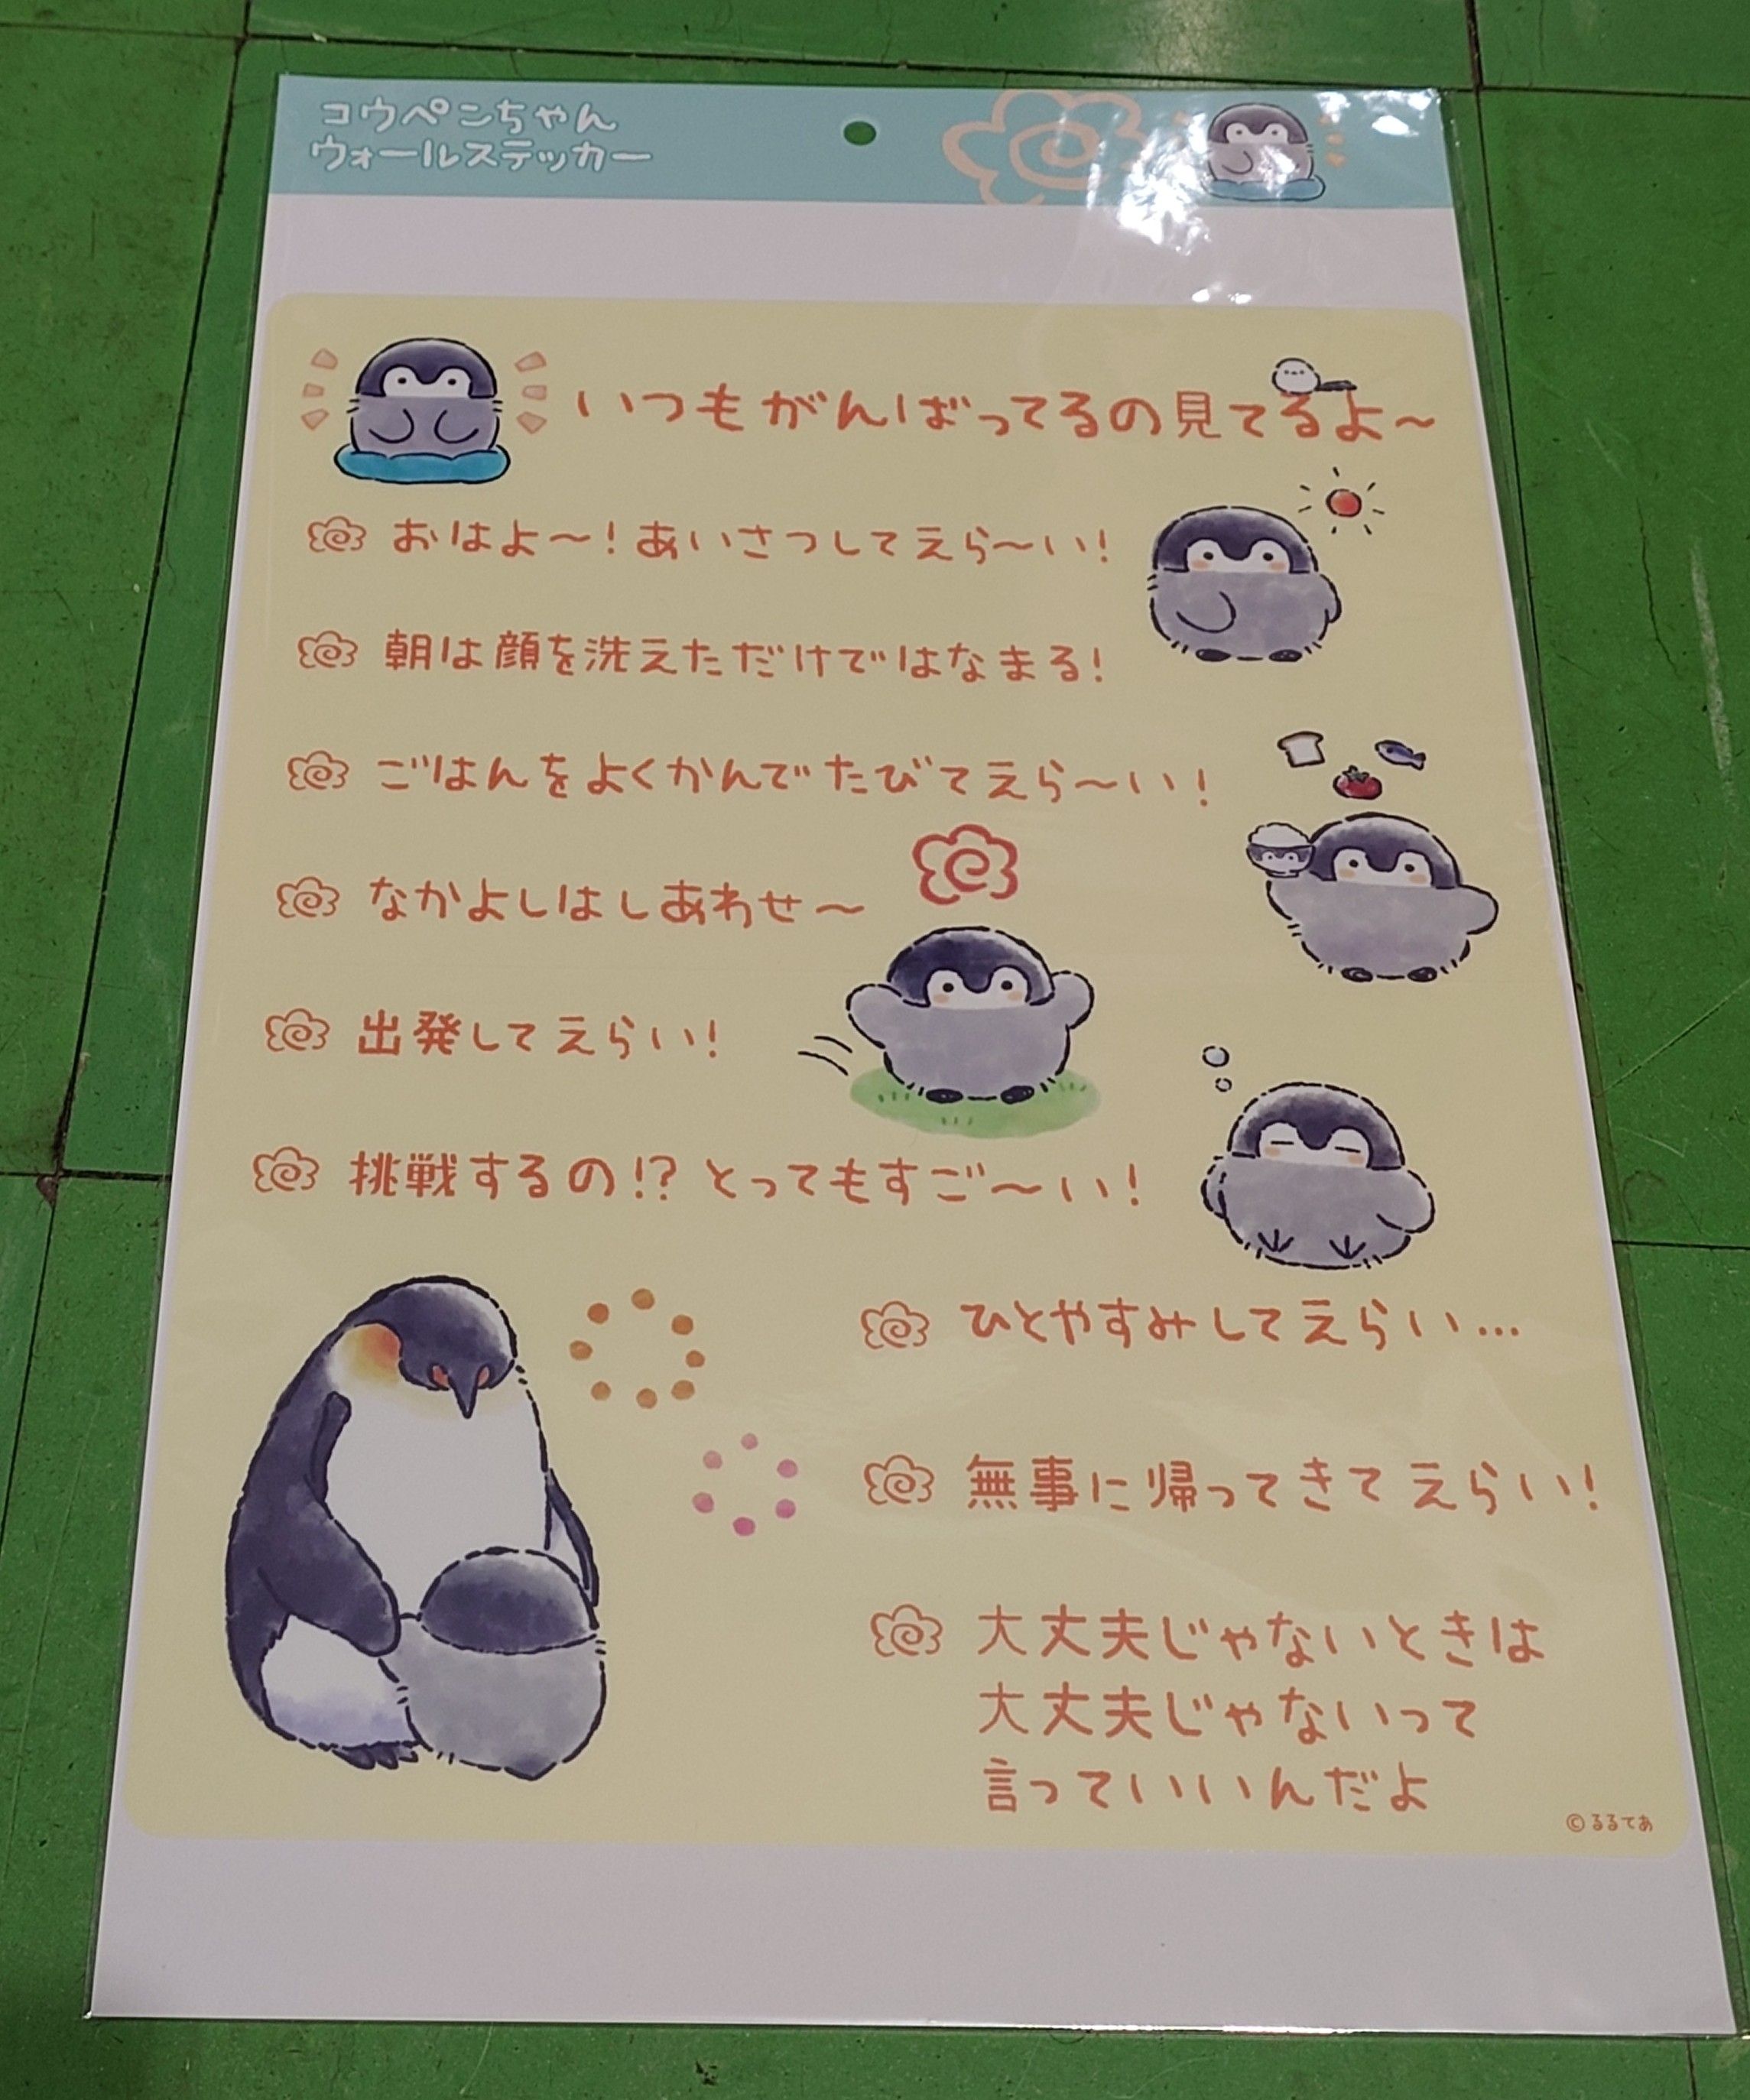 コウペンちゃん
ウォールステッカー
いつもがんばってるの見てるよ～
おはよ～！あいさつしてえら～い！
朝は顔を洗えただけではなまる！
ごはんをよくかんでたびてえら～い！
なかよしはしあわせ～
出発してえらい！
挑戦するの！？とってもすご～い！
ひとやすみしてえらい…
無事に帰ってきてえらい！
大丈夫じゃないときは
大丈夫じゃないって
言っていいんだよ
©るるてあ